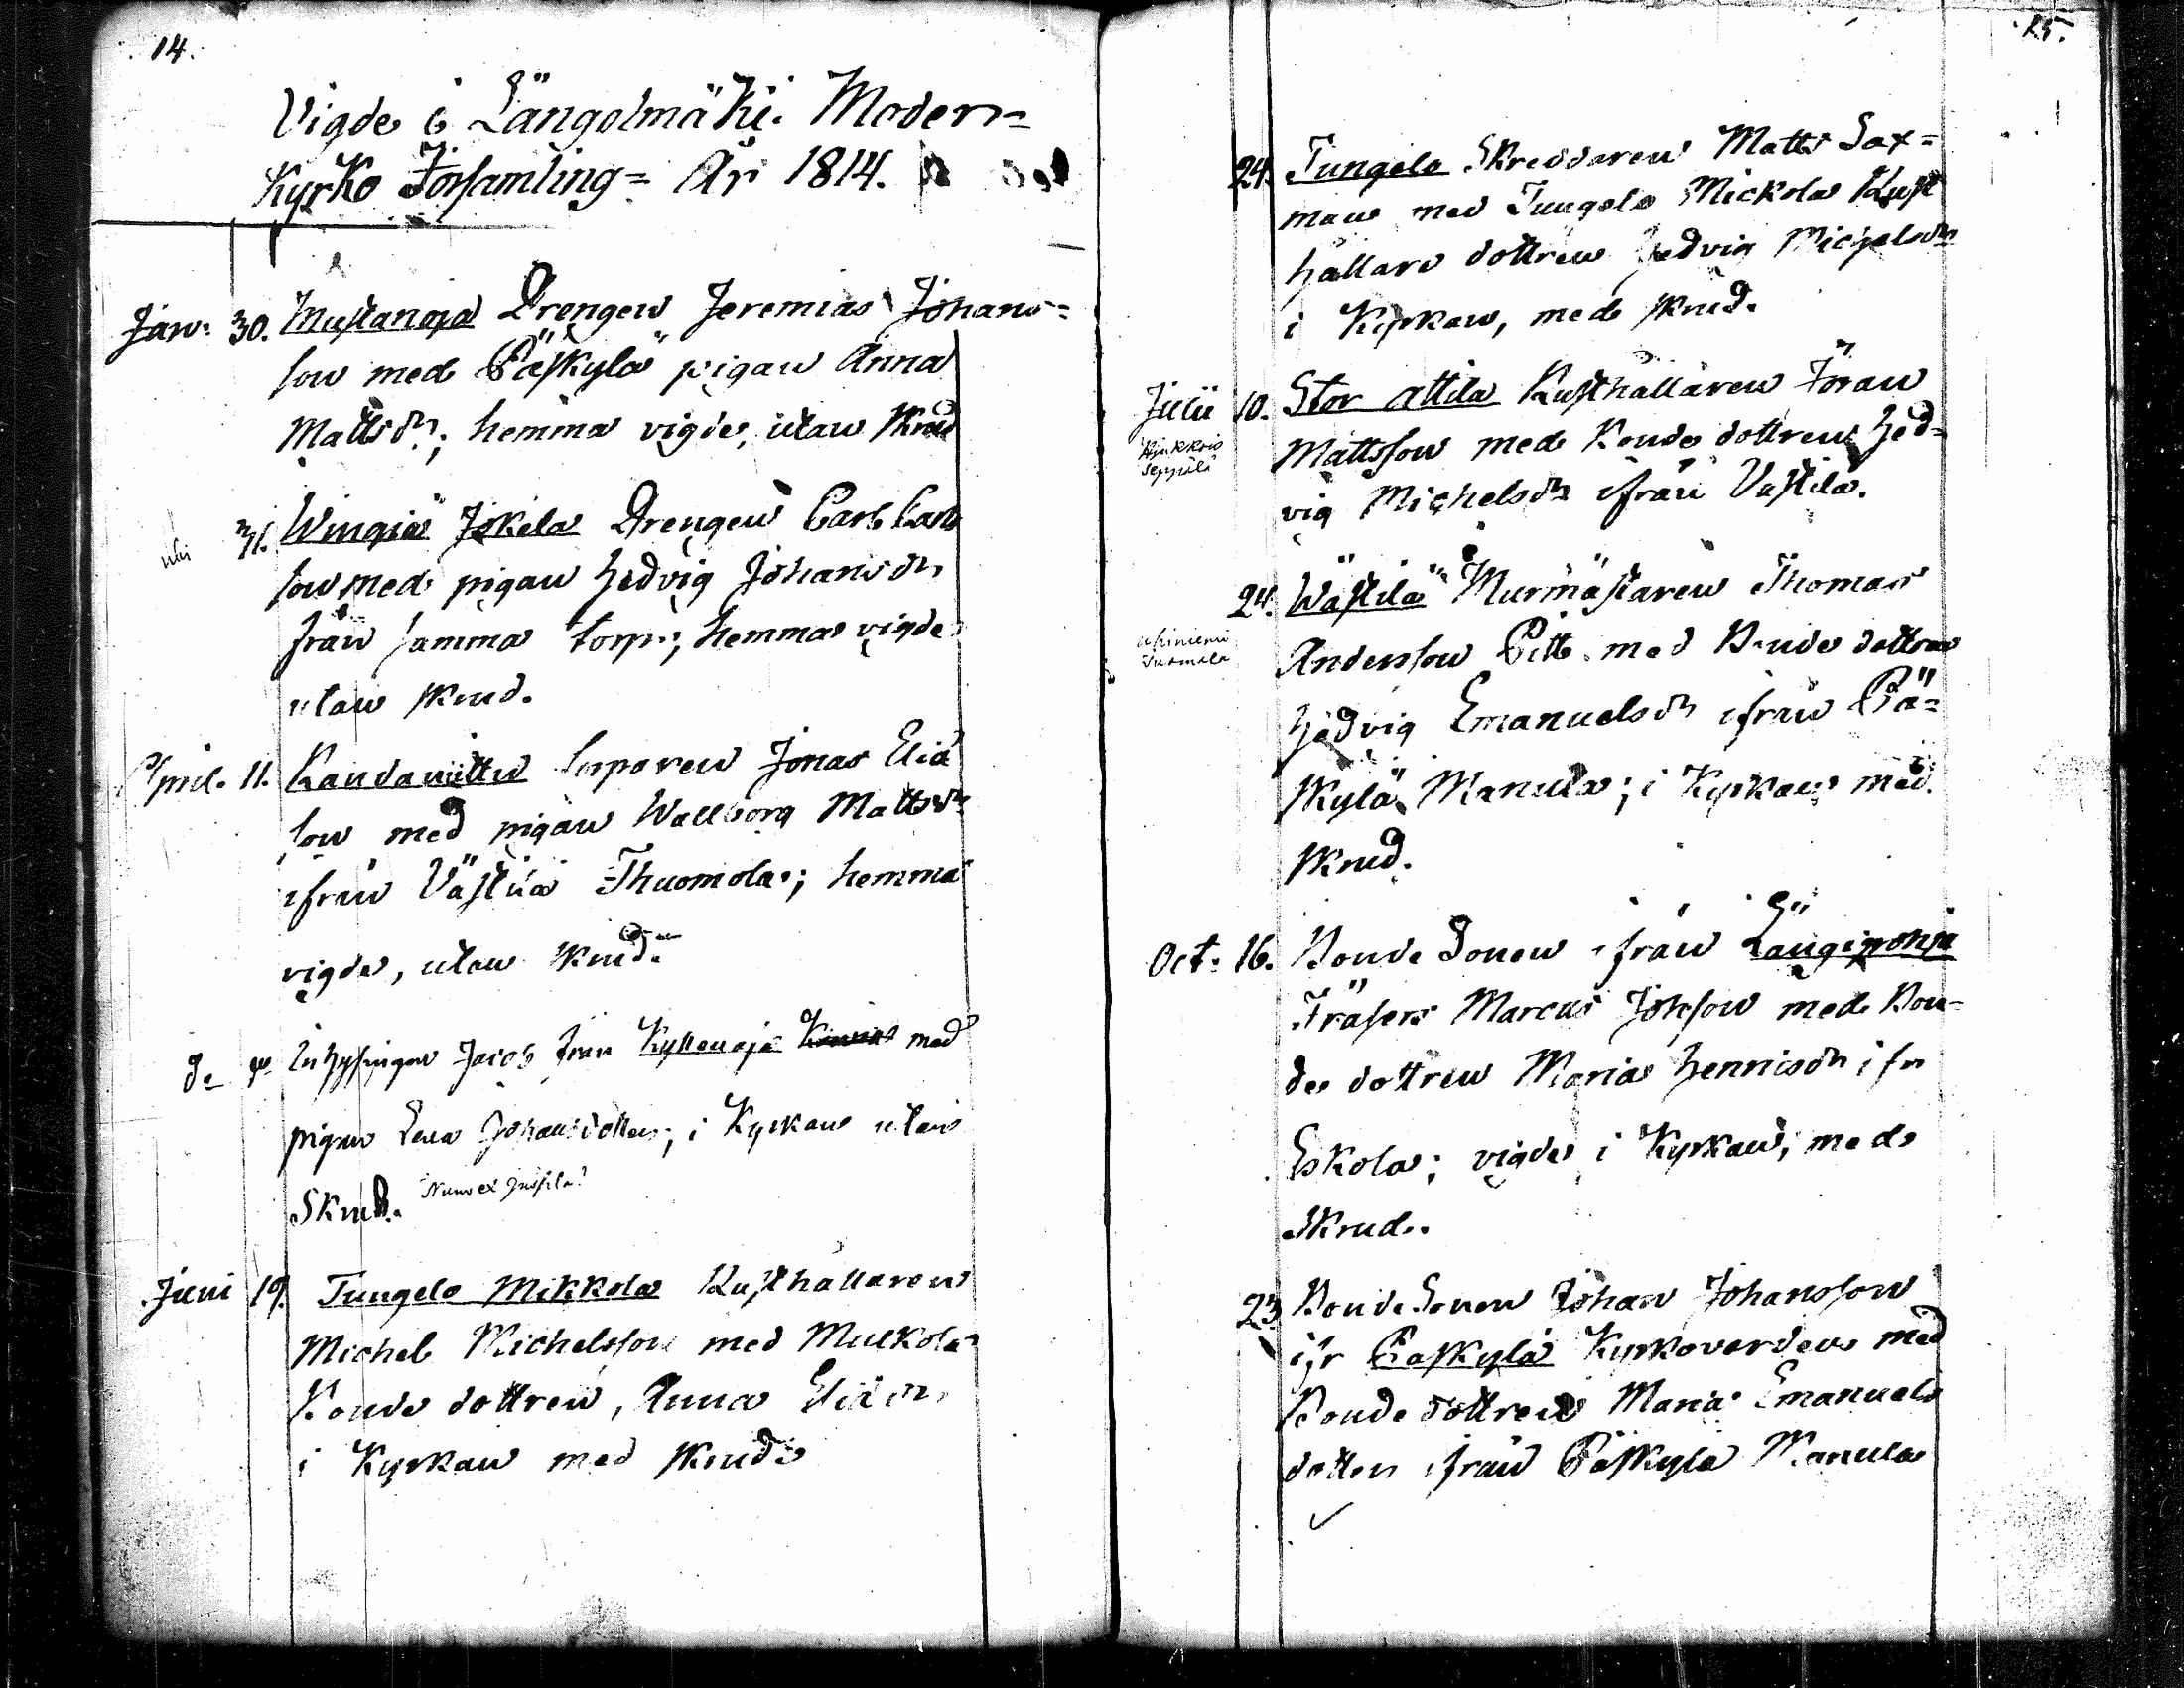 14.
Vigde i Längelmäki Moder=
Kyrko Församling= År 1814.
Jan: 30. Mustanoja Drengen Jeremias Johans=
son med Päskylä pigan Anna
Mattsdr; hemma vigde, utan skrud
31. Wingiä Jokela Drengen Carl Carls
son med pigan Hedvig Johansdr
från samma torp; hemma vigde
utan skrud.
April. 11. Randaniittu torparen Jonas Elia
son med pigan Wallborg Mattsdr
ifrån Västilä Thuomola; hemma
vigde, utan skrud.
Inhysingen Jacob från Kyllenoja med
pigan Lena Johansdotter; i Kyrkan utan
Skrud.
Juni 19. Jungelo Mikkola Rusthållaren
Michel Michelsson med Mulkola
Bonde dottren, Anna Eliædr
i Kyrkan med skrud
15.
24. Jungelo Skreddaren Matts Sax=
man med Jungelo Mickola Rust
hållare dottren Hedvig Michelsdr
i Kyrkan, med skrud.
Julii 10. Stor attila Rusthållaren Jöran
Seppälä
Mattsson med Bonde dottren Hed=
vig Michelsdr ifrån Västilä.
24. Wästilä Murmästaren Thomas
Tuomala
Andersson Pitt med Bonde dottren
Hedvig Emanuelsdr ifrån Pä=
skylä Manula; i Kyrkan med
skrud.
Oct: 16. Bonde Sonen ifrån Längipohja
Fräsers Marcus Johsson med Bon=
de dottren Maria Henricsdr ifr
Eskola; vigde i Kyrkan, med
Skrud.
23 Bonde Sonen Johan Johansson
ifr Päskylä Kyrkovärdens med
Bonde dottren Maria Emanuels
dotter ifrån Päskylä Manula